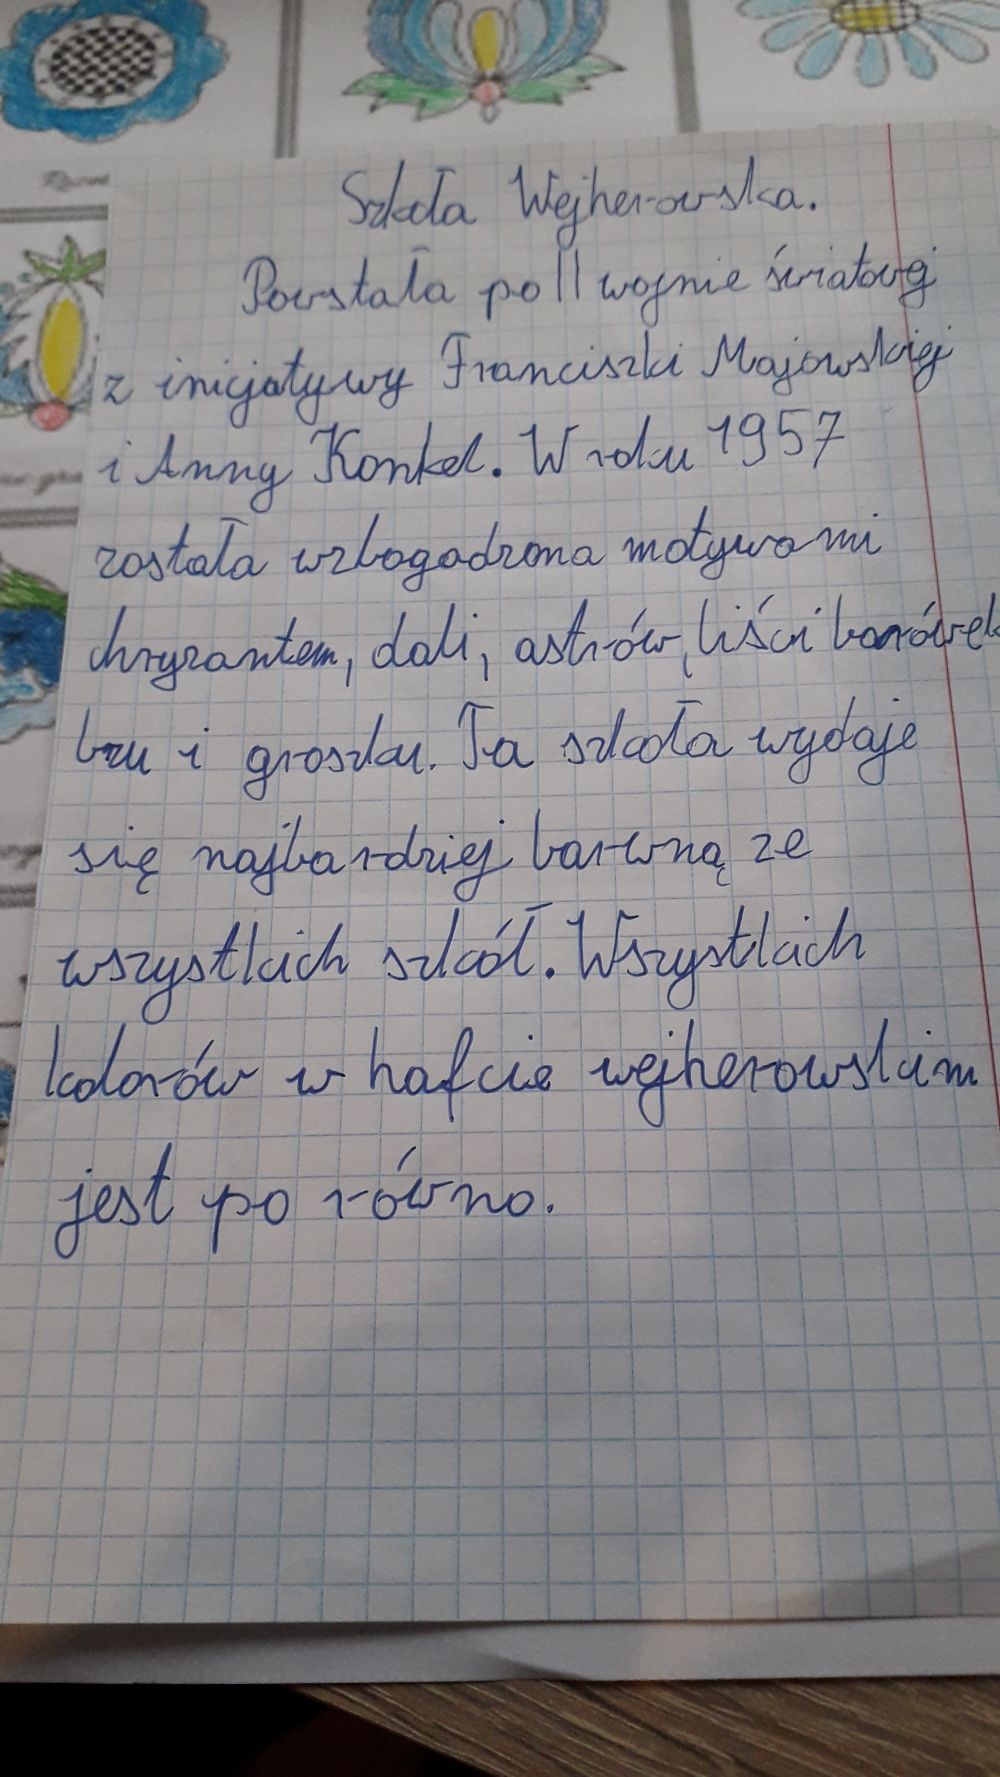 Szkoła Wejherowska.
Powstała po II wojnie światowej
z inicjatywy Franciszki Majowskiej
i Anny Konkel. W roku 1957
została wzbogadzona motywami
chryzantem, dali, astrów, liści borówek
bzu i groszku. Ta szkoła wydaje
się najbardziej barwną ze
wszystkich szkół. Wszystkich
kolorów w hafcie wejherowskim
jest po równo.